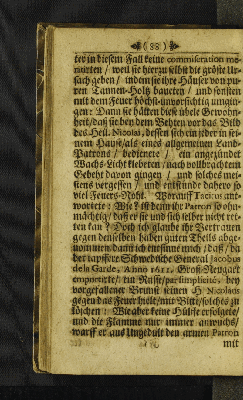 (88)
ter in diesem Fall keine commiseration me-
ritirten / weil sie hierzu selbst die gröste Ur-
sach geben / indem sie ihre Häuser von pu-
ren Tannen-Holtz baueten / und sonsten
mit dem Feuer höchst-unvorsichtig umgin-
gen: Dann sie hätten diese üble Gewohn-
heit / daß sie bey dem Behten vor das Bild
des Heil. Nicolai, dessen sich ein jeder in sei-
nem Hause / als eines allgemeinen Land-
Patrons / bediente / ein angezündet
Wachs-Licht klebeten / nach vollbrachtem
Gebeht davon gingen / und solches mei-
stens vergessen / und entstünde dahero so
viel Feuers-Noht. Worauff ant-
wortete: Wie? ist dann ihr Patron so ohn-
mächtig / daß er sie und sich selber nicht ret-
ten kan? Doch ich glaube ihr Vertrauen
gegen denselben haben guten Theils abge-
nommen / dann ich entsinne mich / daß / da
der tapffere Schwedische General Jacobus
de la Garde, Anno 1611. Groß-Neugart
emportirte / ein Russe / par simplicité, bey
vorgefallener Brunst seinen H. Nicolaus
gegen das Feuer hielte / mit Bitt / solches zu
löschen: Wie aber keine Hülffe erfolgete /
und die Flamme nur immer anwuchs /
warff er aus Ungedult den armen Patron
mit